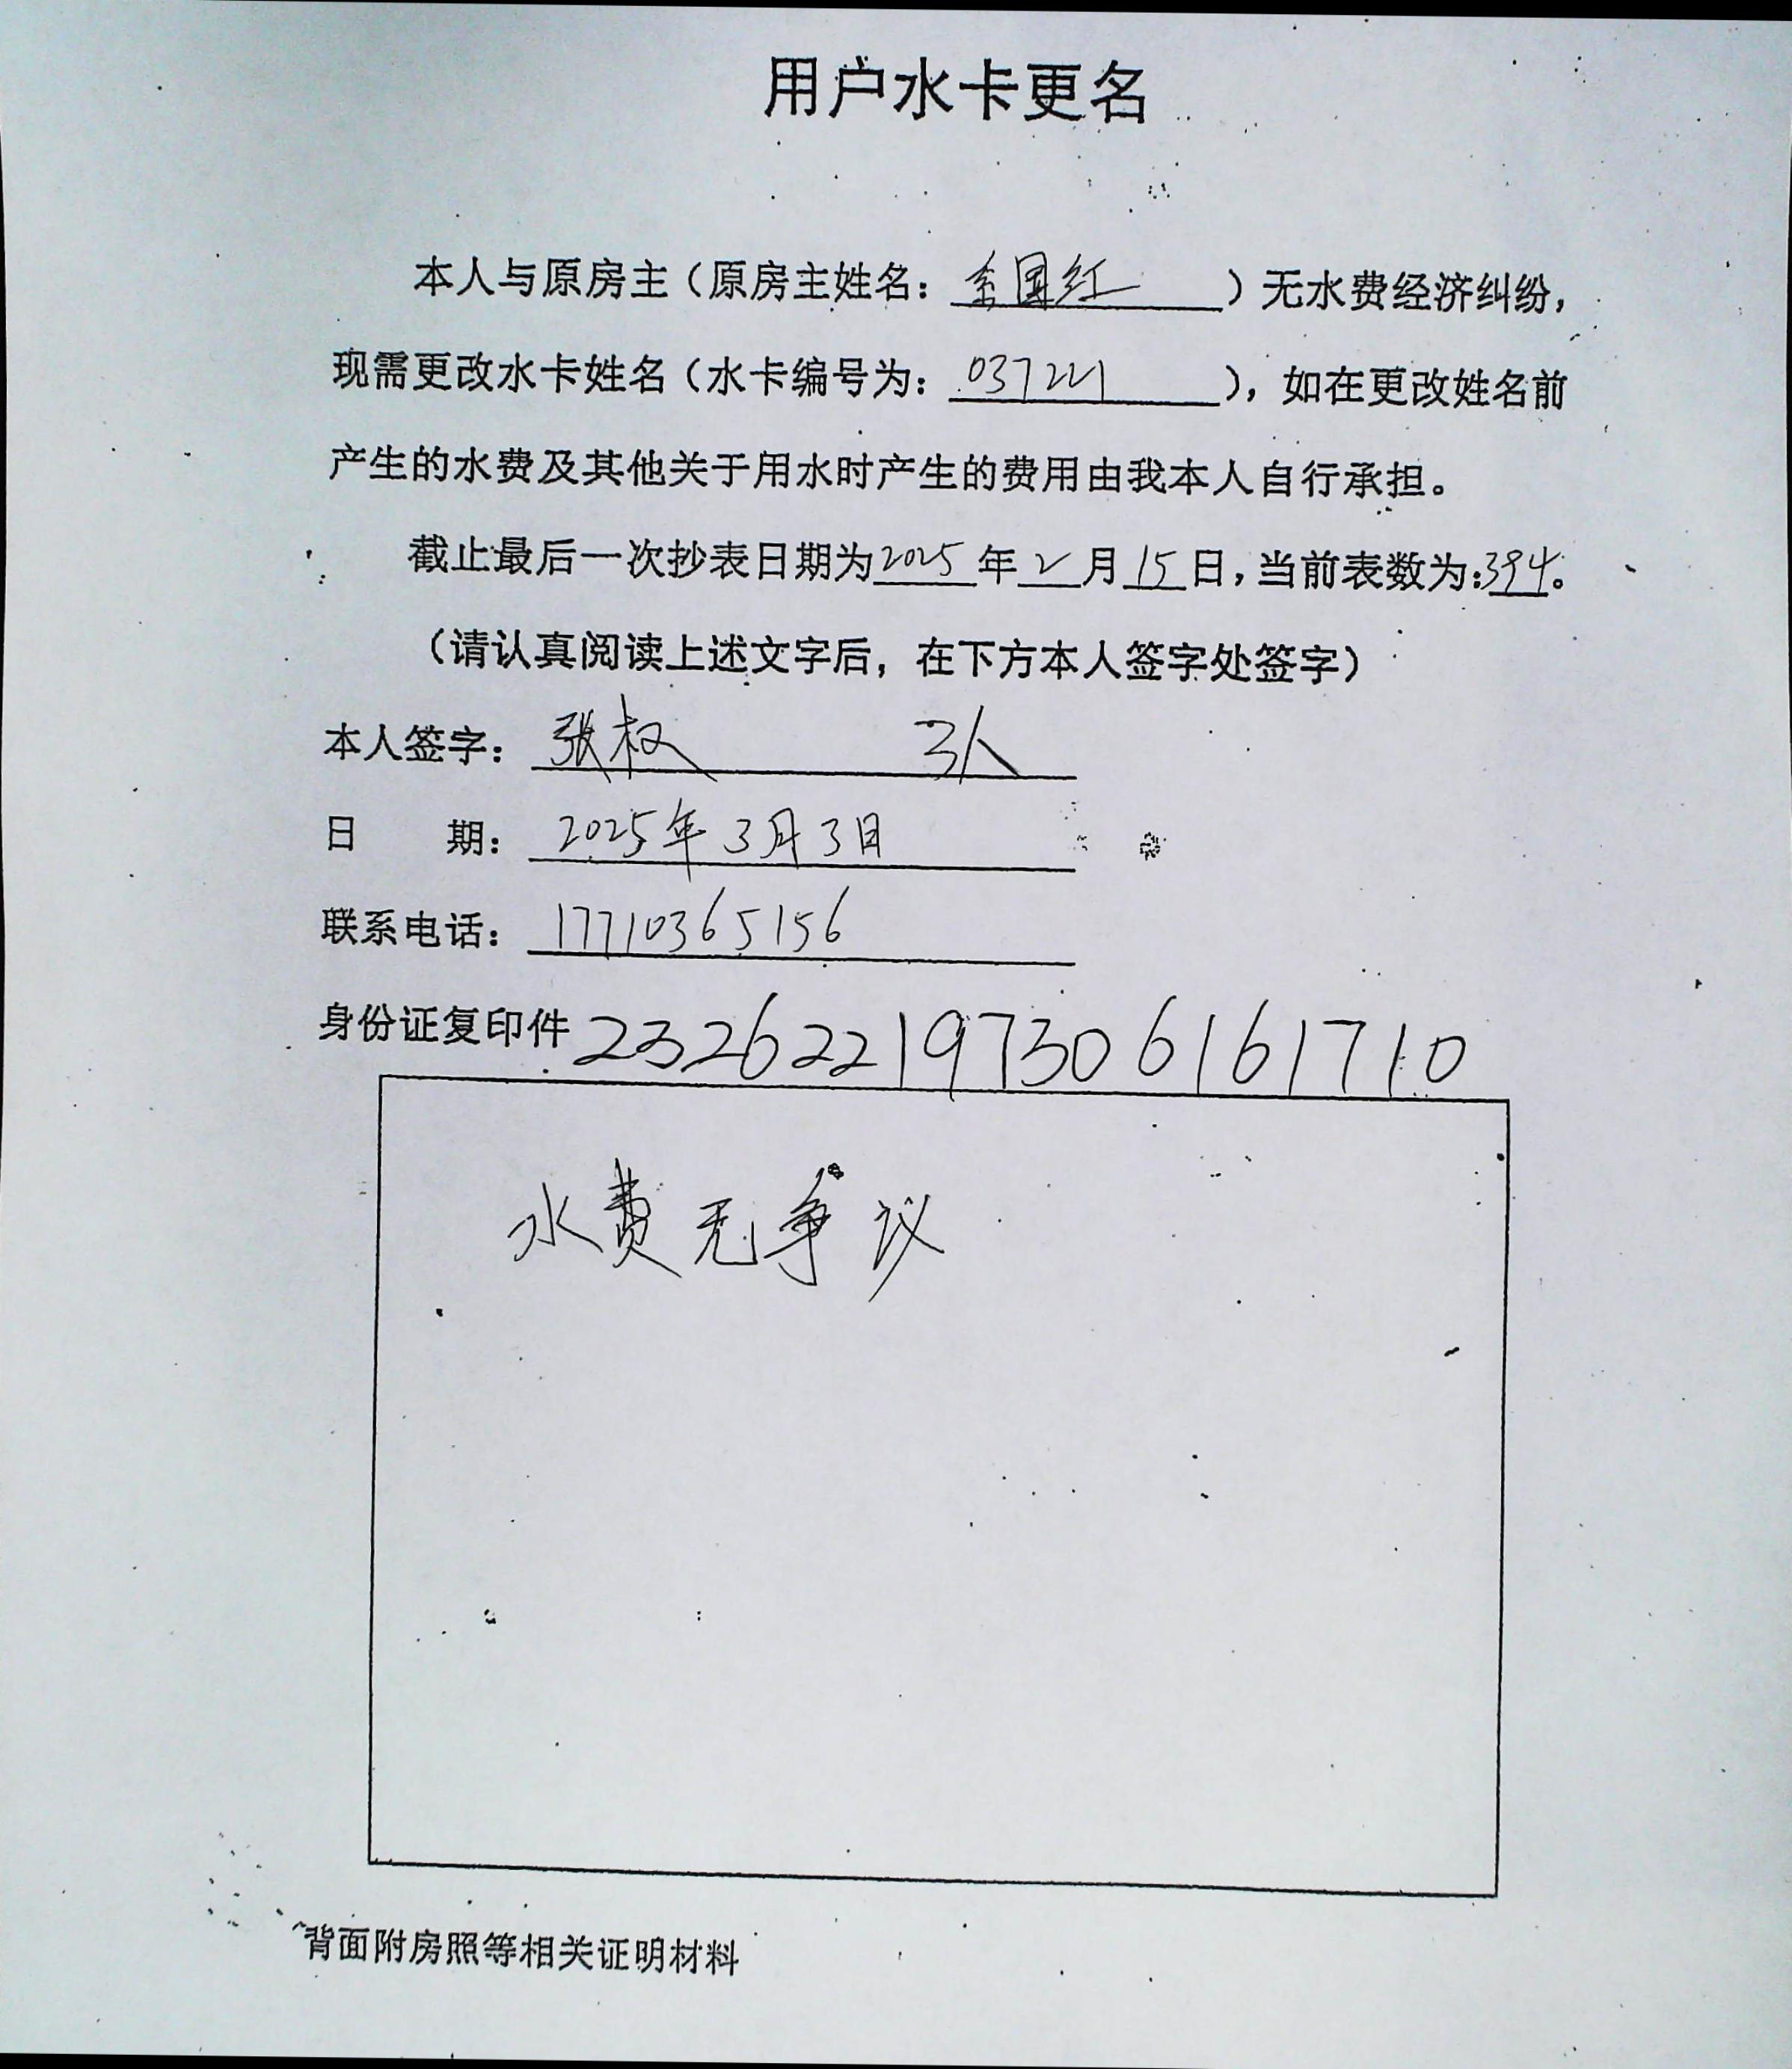 用户水卡更名
本人与原房主（原房主姓名：国红）无水费经济纠纷，
现需更改水卡姓名（水卡编号为：037221），如在更改姓名前
产生的水费及其他关于用水时产生的费用由我本人自行承担。
截止最后一次抄表日期为2025年2月15日，当前表数为：394。
（请认真阅读上述文字后，在下方本人签字处签字）
本人签字：张权 3人
日 期：2025年3月3日
联系电话：17710365156
身份证复印件 232622197306161710
水费无争议
背面附房照等相关证明材料